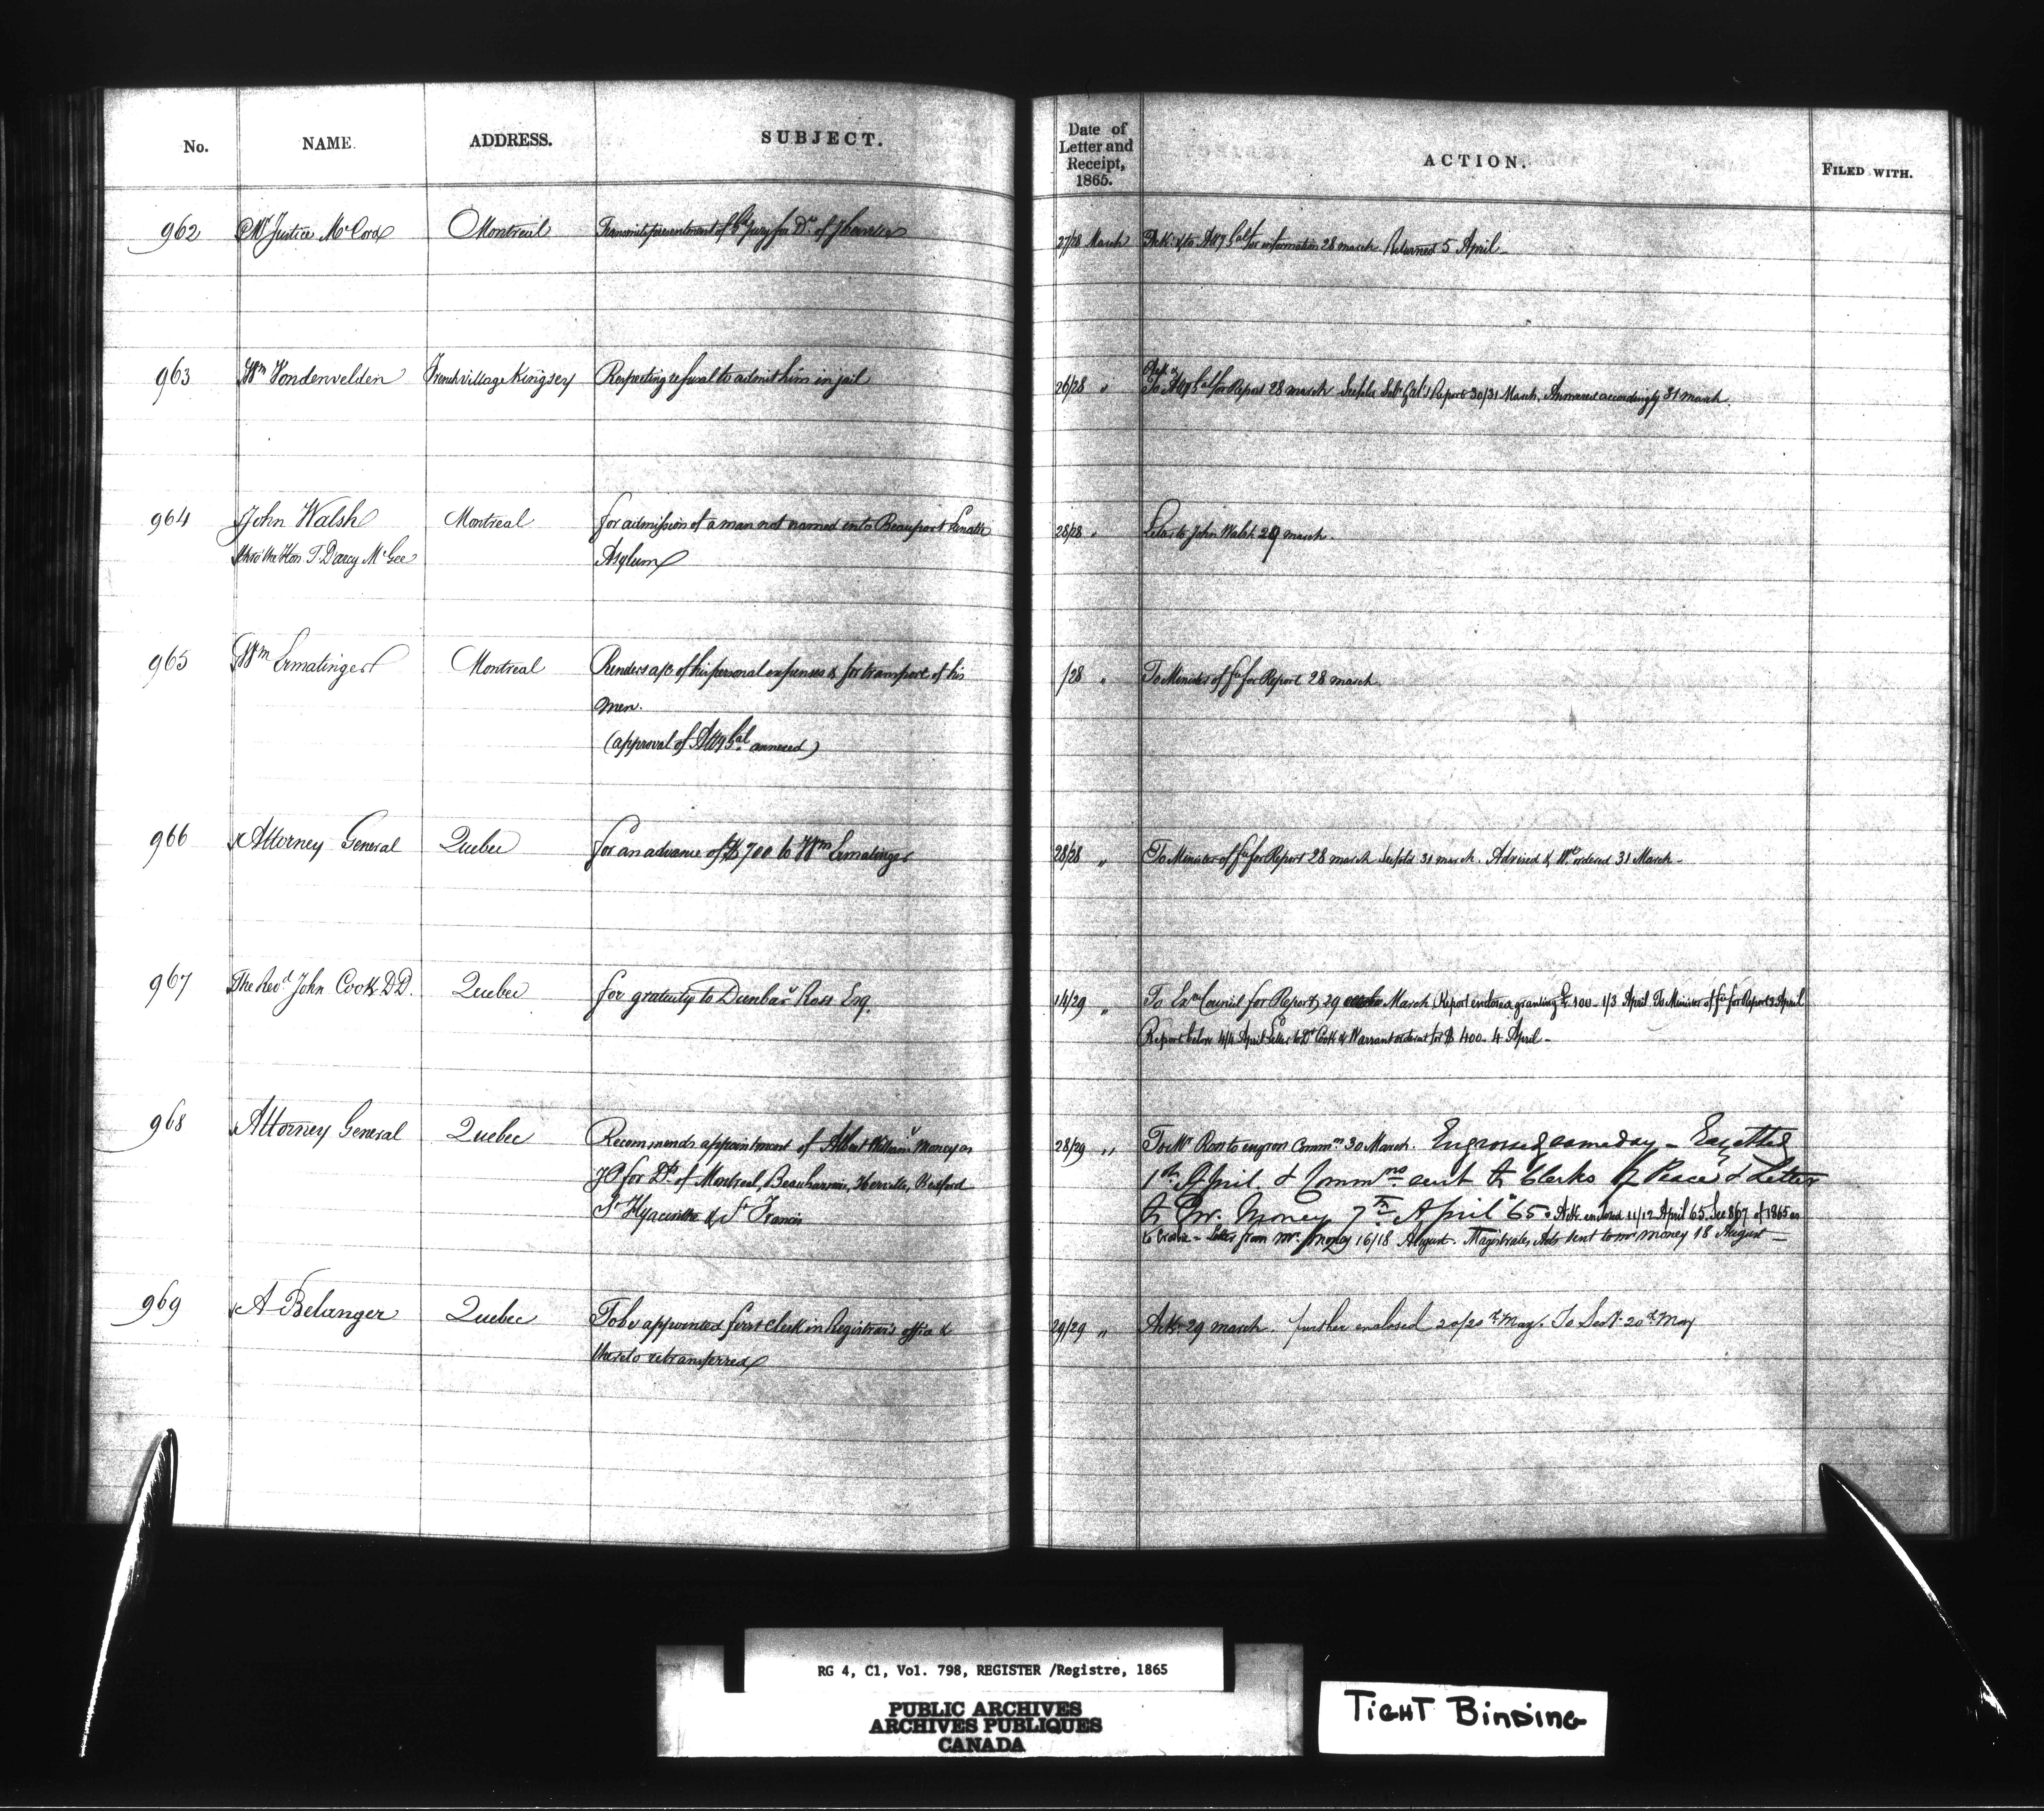 No. NAME. ADDRESS. SUBJECT. Date of Letter and Receipt, 1865. ACTION. FILED WITH.
962 Mr Justice McCord Montreal Transmits presentment of Gd Jury for Dt of 27/28 March Ack: & to Atty Gal for information 28 march Returned 5 April
963 Wm Vondenvelden French Village Kingsey Respecting refusal to admit him in jail 26/28 " To Atty Gal for Report 28 march Report 30/31 March. Answered accordingly 31 march.
964 John Walsh Montreal for admission of a man not named into Beauport Lunatic 28/28 " Letter to John Walsh 29 march.
thro' the Hon T. Darcy McGee Asylum
965 Wm Ermatinger Montreal Renders a/c of his personal expenses & for transport of his /28 " To Minister of Fe for Report 28 march
men.
(approval of Atty Gal annexed)
966 Attorney General Quebec for an advance of $700 to Wm Ermatinger 28/28 " To Minister of Fe for Report 28 march 31 march. Advised & Wt ordered 31 March -
967 The Revd John Cook DD. Quebec for gratuity to Dunbar Ross Esq. 14/29 " To Exe Council for Report 29 March Report endorsed granting £100 - 1/3 April To Minister of Fe for Report 3 April
Report below 4/4 April Letter to Dr Cook & Warrant ordered for $400. 4 April -
968 Attorney General Quebec Recommends appointment of Albert William Money as 28/29 " To Mr Ross to engross Commn 30 March. Engrossed same day - Gazetted
JP for Dts of Montreal, Beauharnois, Iberville, Bedford 1st April. & Commns sent to Clerks of Peace & Letter
St Hyacinthe & St Francis to Mr. Money 7th April 65. Ack. enclosed 11/12 April 65. See 867 of 1865 as
to - Letter from Mr. Money 16/18 August. Magistrates Acts sent to Mr Money 18 August -
969 A Belanger Quebec To be appointed first clerk in Registrar's office & 29/29 " Ack. 29 march. further enclosed 20/20th May. To Sect. 20th May
thereto retransferred
RG 4, C1, Vol. 798, REGISTER /Registre, 1865
PUBLIC ARCHIVES
ARCHIVES PUBLIQUES
CANADA
TIGHT BINDING